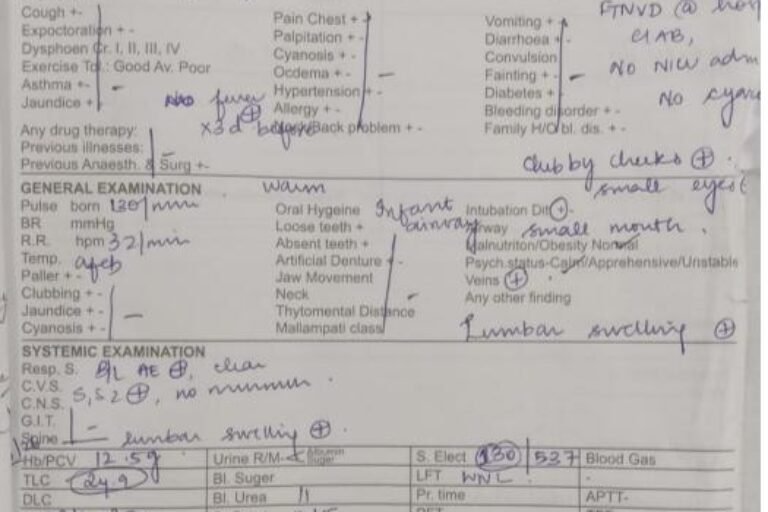 Cough +-
Pain Chest +-
Vomiting +-
FTNVD @
Expoctoration +-
Palpitation +-
Diarrhoea +-
CIAB,
Dysphoen Gr. I, II, III, IV
Cyanosis +-
Convulsion
Exercise Tol.: Good Av. Poor
Ocdema +- –
Fainting +- –
NO NICU adm
Asthma +- –
Hypertension +-
Diabetes +-
NO cyano
Jaundice +-
NO fever ⊕
Allergy +-
Bleeding disorder +-
x3d before
Any drug therapy:
Back problem +-
Family H/O bl. dis. +-
Previous illnesses: –
Previous Anaesth. & Surg +-
Chubby cheeks ⊕.
GENERAL EXAMINATION
Warm
small eyes
Pulse born 130/min
Oral Hygeine
Infant airway
Intubation Dif ⊕-
BR mmHg
Loose teeth +
Airway small mouth.
R.R. hpm 32/min
Absent teeth +
Malnutriton/Obesity Normal
Temp. afeb
Artificial Denture +-
Psych.status-Calm/Apprehensive/Unstable
Paller +-
Jaw Movement
Veins ⊕
Clubbing +-
Neck –
Any other finding
Jaundice +- –
Thytomental Distance
Cyanosis +-
Mallampati class
Lumbar swelling ⊕
SYSTEMIC EXAMINATION
Resp. S. B/L AE ⊕, clear
C.V.S. S1S2 ⊕, no murmur.
C.N.S.
G.I.T. –
Spine lumbar swelling ⊕.
Hb/PCV 12.5g
Urine R/M- Albumin Suger
S. Elect 130/5.37
Blood Gas
TLC 24.9
Bl. Suger
LFT WNL
DLC
Bl. Urea 11
Pr. time
APTT-